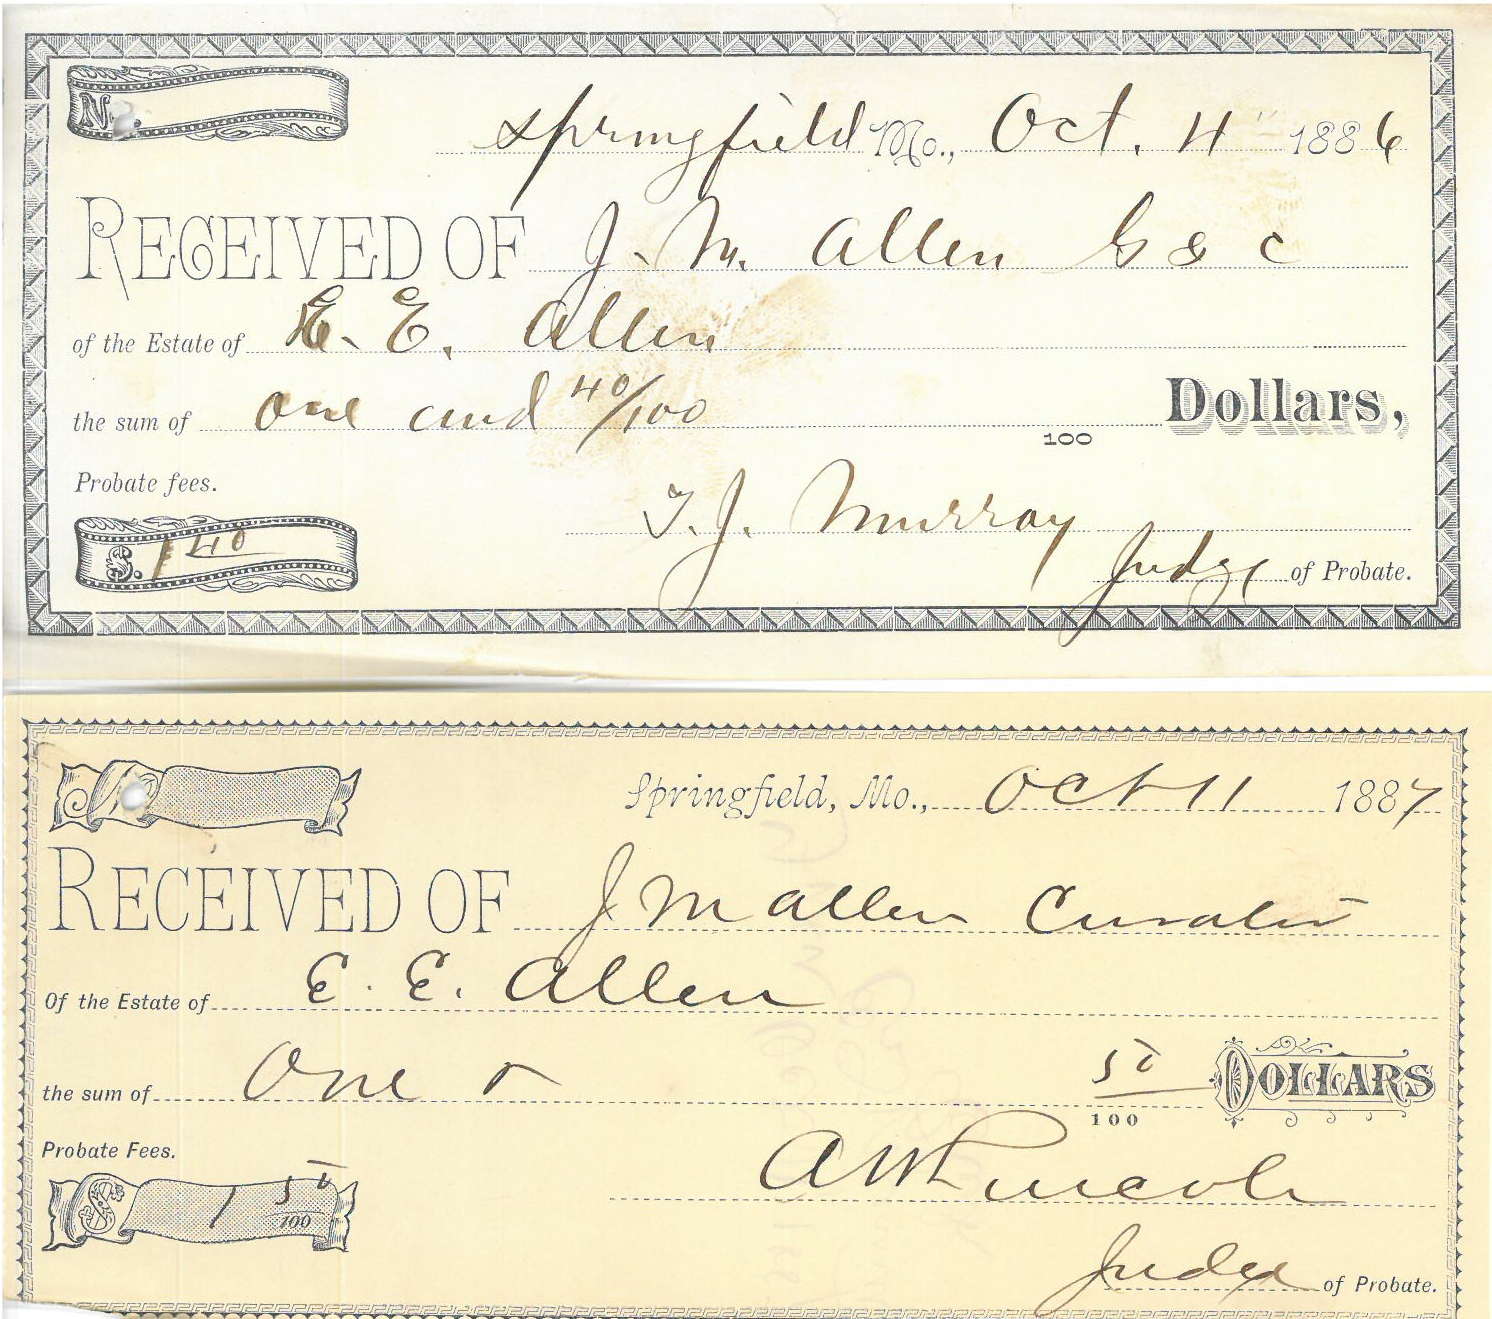 No.
Springfield Mo., Oct. 4" 1886
RECEIVED OF J. M. Allen G & C
of the Estate of E. E. Allen
the sum of One and 40/100 100 Dollars,
Probate fees.
T. J. Murray
$. 1 40 Judge of Probate.
Springfield, Mo., Oct 11 1887
RECEIVED OF J M Allen Curator
Of the Estate of E. E. Allen
the sum of One & 50/100 DOLLARS
Probate Fees.
$ 1 50/100 A W Lincoln
Judge of Probate.